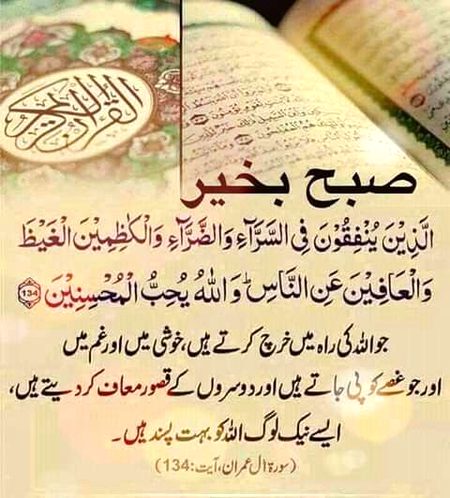 القرآن الكريم
صبح بخیر
الَّذِیْنَ یُنْفِقُوْنَ فِی السَّرَّآءِ وَالضَّرَّآءِ وَالْکٰظِمِیْنَ الْغَیْظَ
وَالْعَافِیْنَ عَنِ النَّاسِ ؕ وَاللّٰهُ یُحِبُّ الْمُحْسِنِیْنَ ﴿134﴾
جو اللہ کی راہ میں خرچ کرتے ہیں، خوشی میں اور غم میں
اور جو غصے کو پی جاتے ہیں اور دوسروں کے قصور معاف کر دیتے ہیں،
ایسے نیک لوگ اللہ کو بہت پسند ہیں۔
(سورۃ ال عمران، آیت: 134)